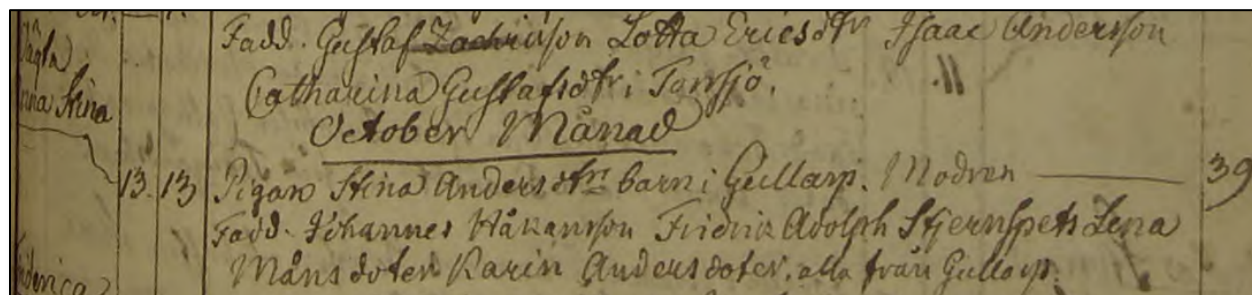 Fadd. Gustaf Zachrisson Lotta Ericsdtr Isaac Andersson
Catharina Gustafsdtr i Torrsjö.
October Månad
Stina
13. 13 Pigan Stina Andersdtrn barn i Gullarp. Modren 39
Fadd. Johannes Håkansson Fridric Adolph Stjernspets Lena
Månsdoter Karin Andersdoter. alla från Gullarp.